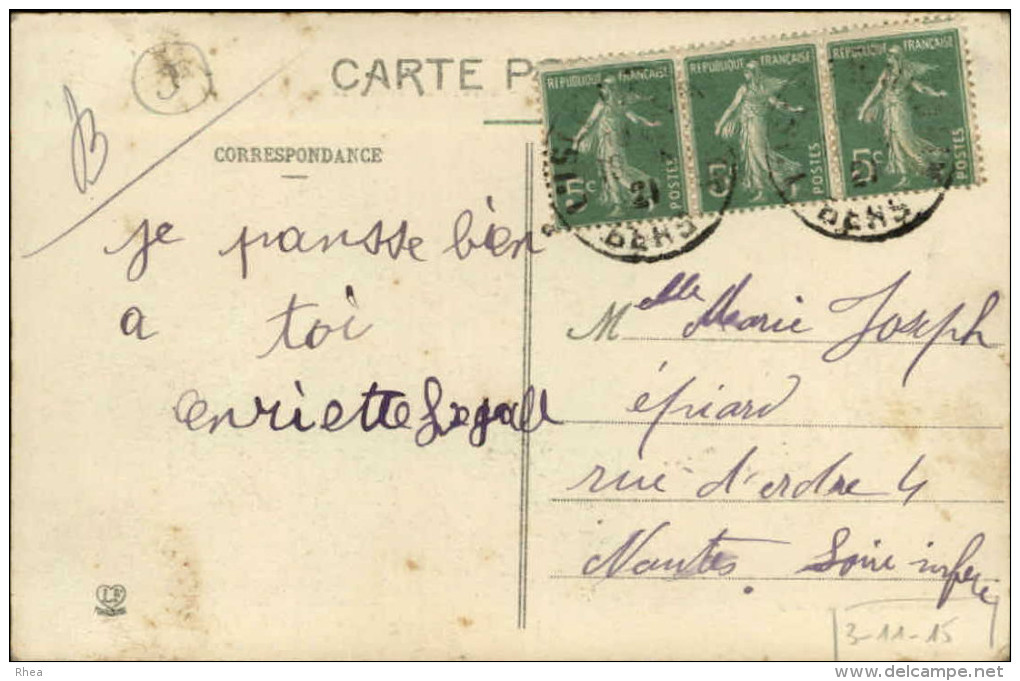 CARTE PO
CORRESPONDANCE
je pansse bien
a toi
enriette Legall
REPUBLIQUE FRANÇAISE
5c
POSTES
REPUBLIQUE FRANÇAISE
5c
POSTES
REPUBLIQUE FRANÇAISE
5c
POSTES
Melle Marie Joseph
épiard
rue d'erdre 4
Nantes. Loire infre
3-11-15
B
Rhea
www.delcampe.net